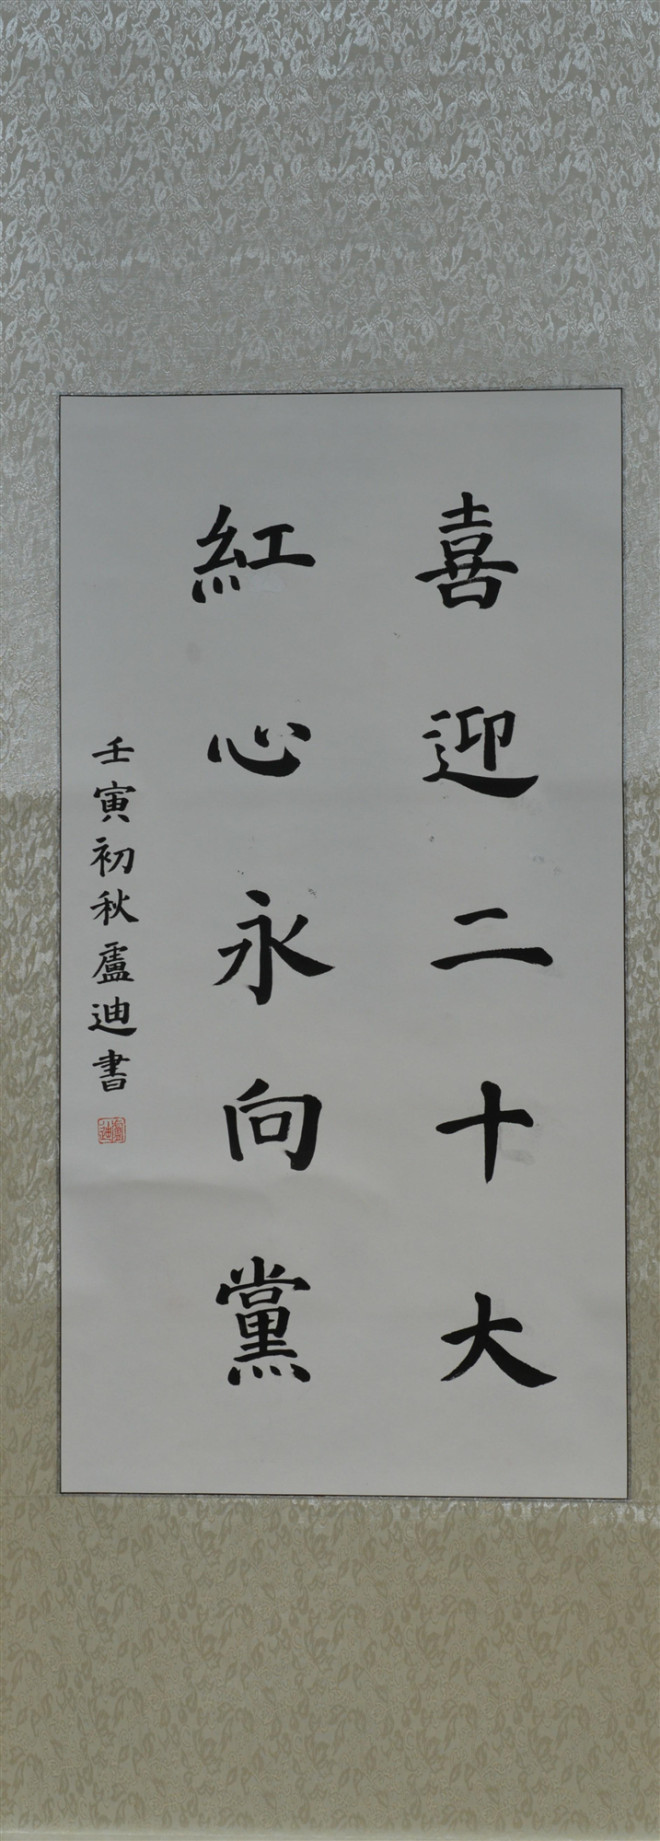 喜迎二十大
紅心永向黨
壬寅初秋盧迪書